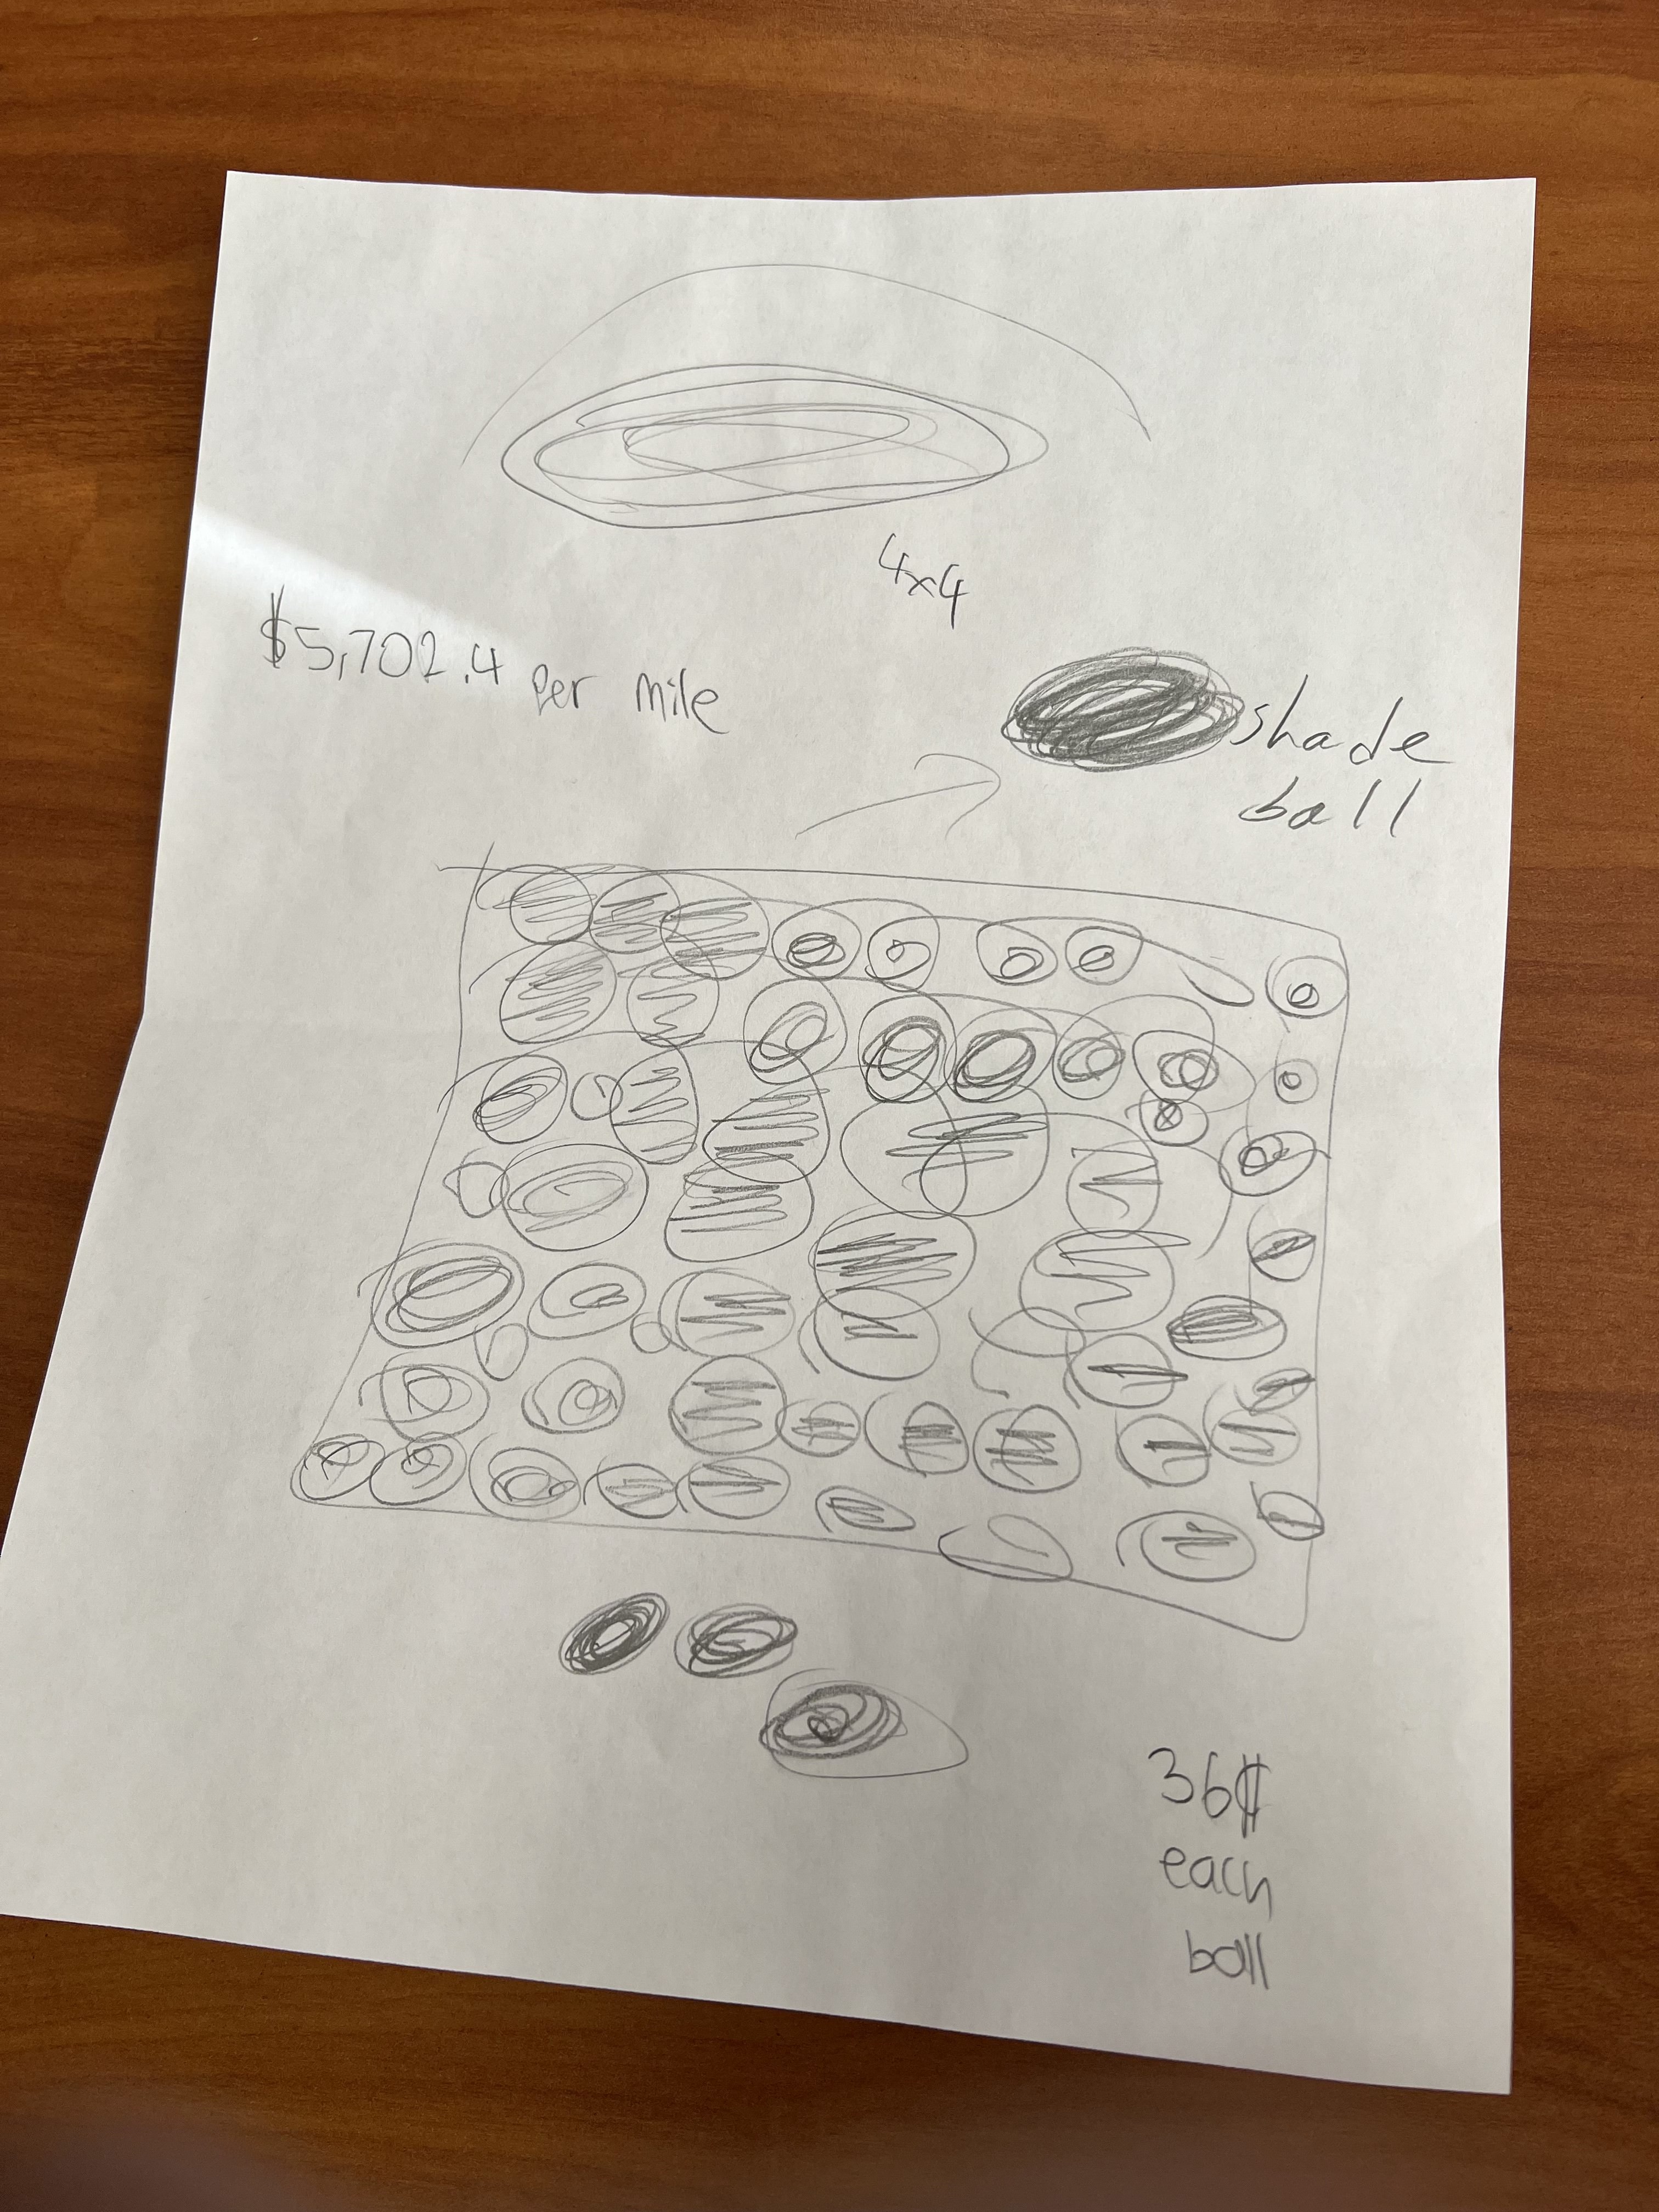 4x4
$5,702.4 per mile
shade
ball
36$
each
ball